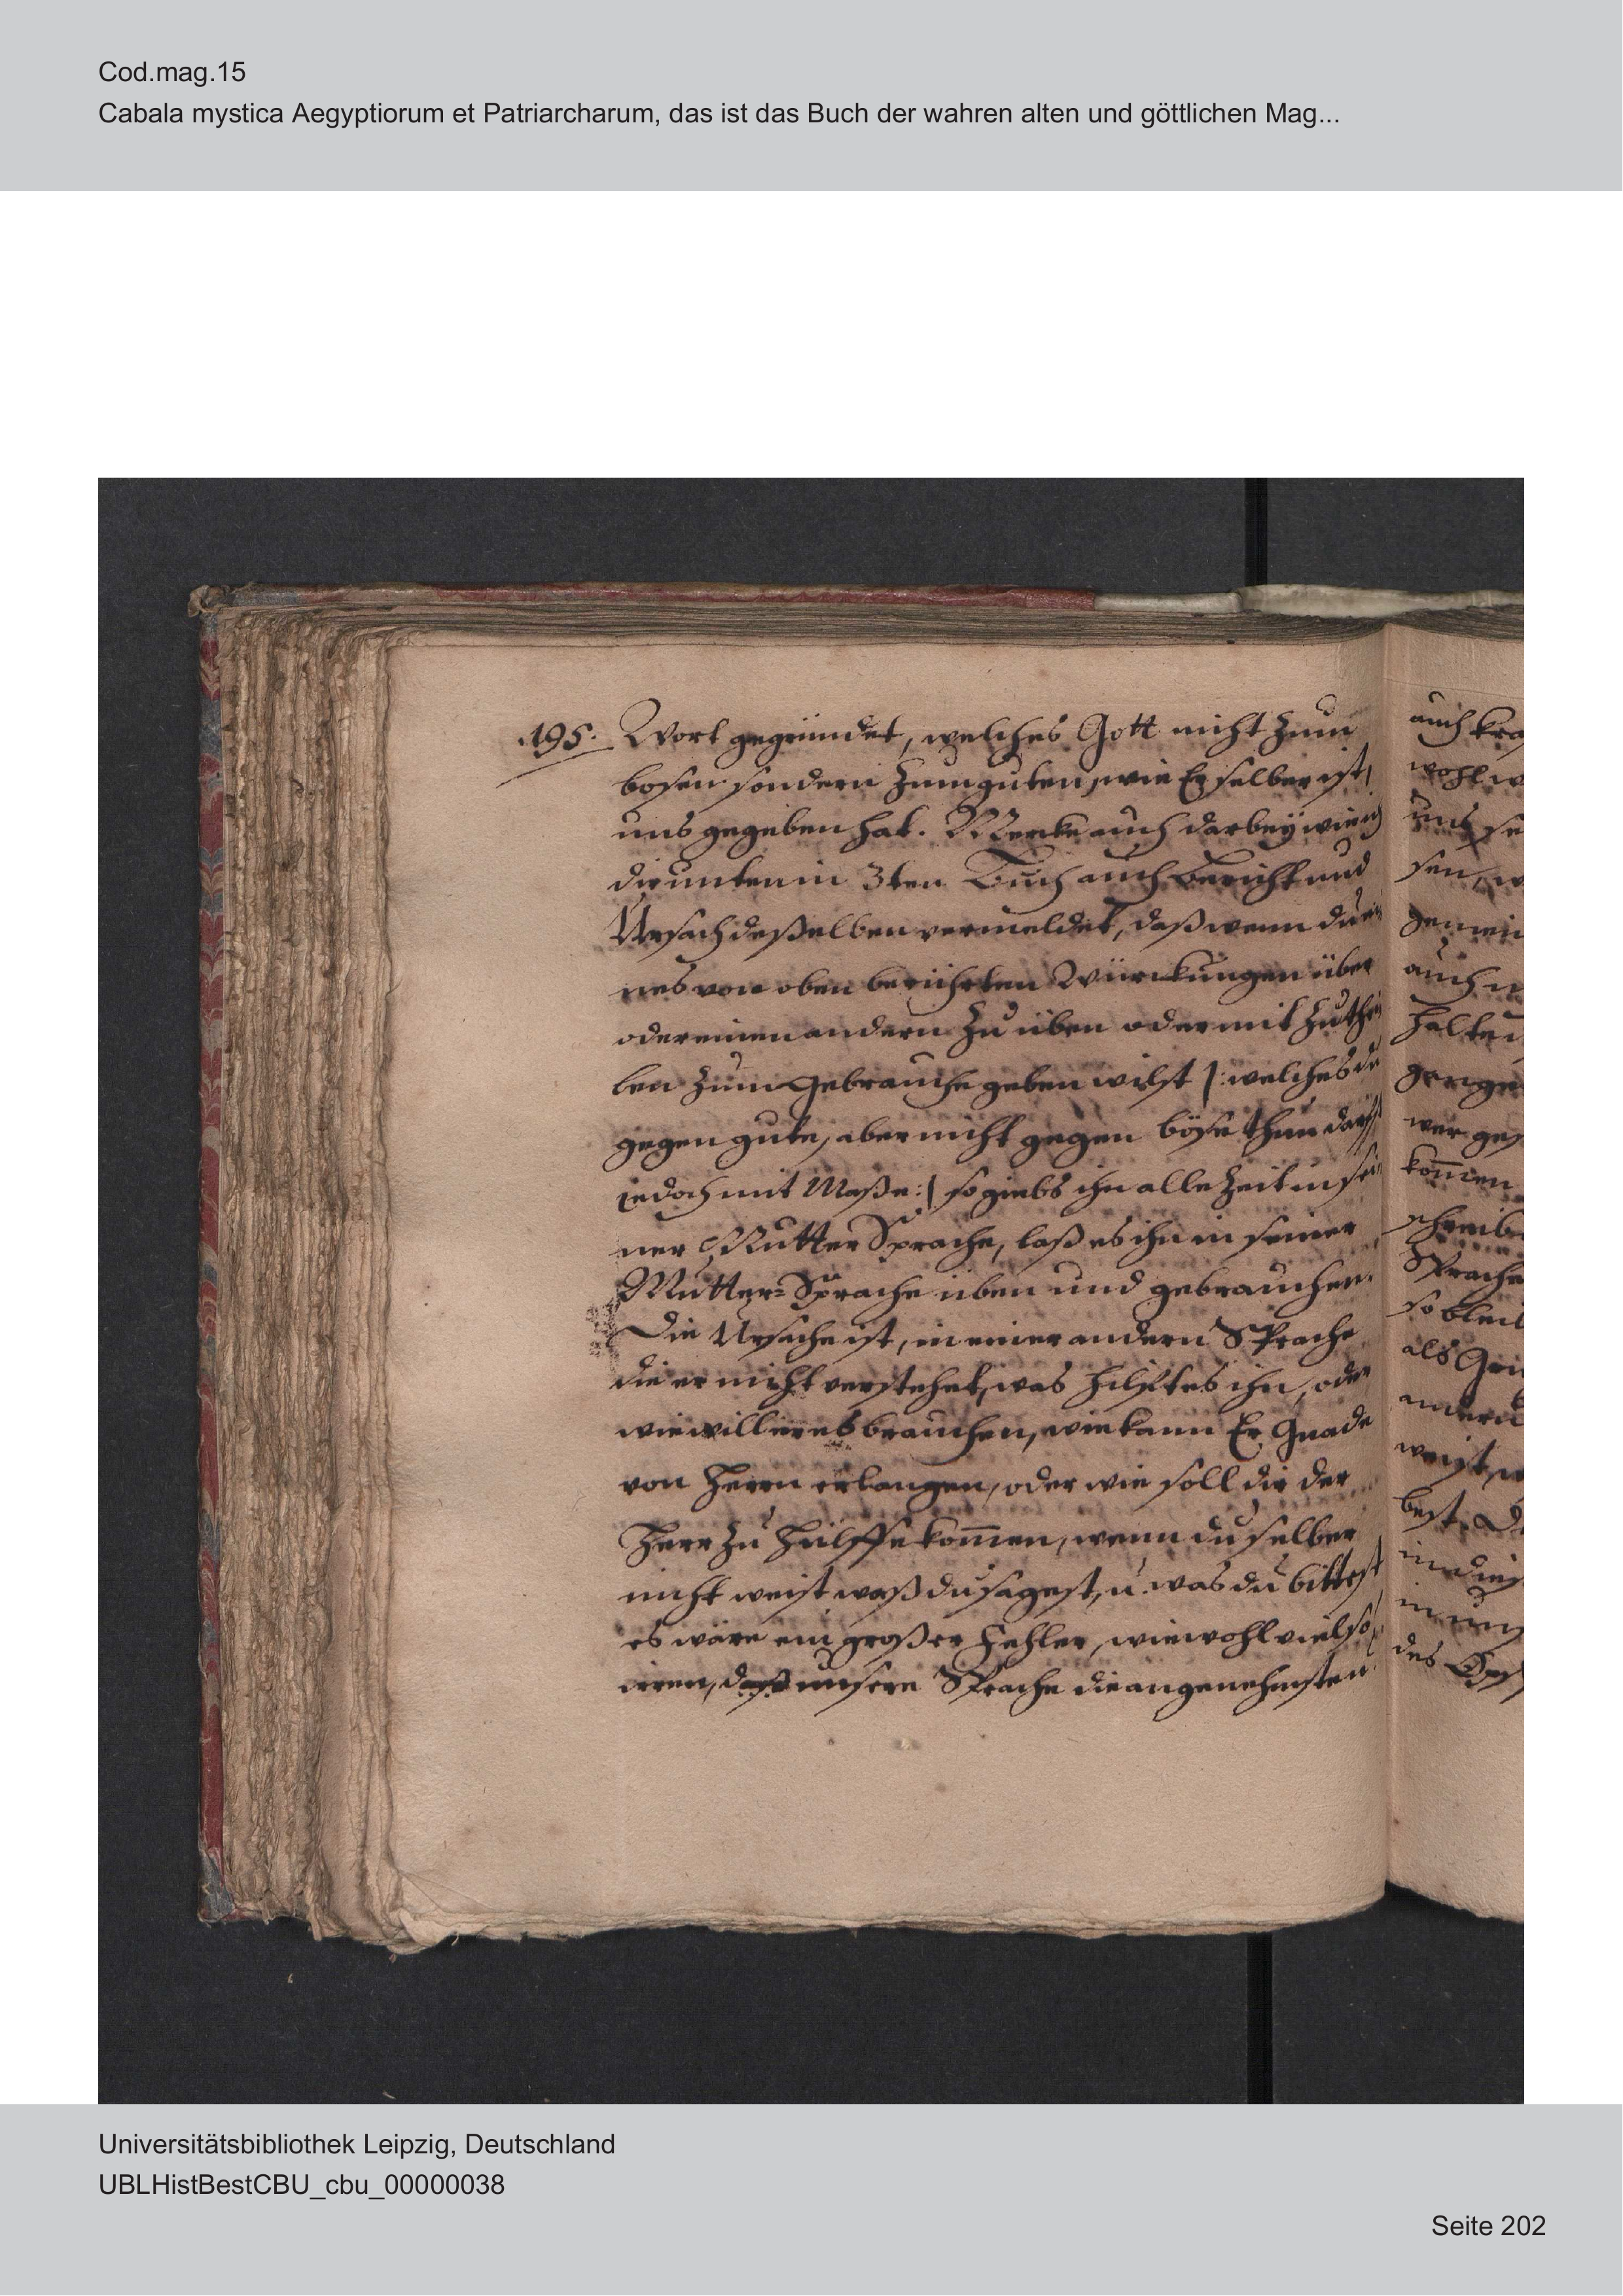 Cod.mag.15
Cabala mystica Aegyptiorum et Patriarcharum, das ist das Buch der wahren alten und göttlichen Mag...
.195. Wort gegründet, welches Gott nicht zum
bosen sondern zum guten, wie Er selber ist,
uns gegeben hat. Mercke auch darbey wie ich
dir unten in 3ten Buch auch bericht und
Ursach deßelben vermeldet, daß wenn du ei
nes von oben berührten Würckungen über
oder einen andern zu üben oder mit zuthei
len zum Gebrauche geben wilst |: welches du
gegen gute, aber nicht gegen böse thun darfst
iedoch mit Maße :| so giebs ihn alle Zeit in sei
ner Mutter Sprache, laß es ihn in seiner
Mutter=Sprache üben und gebrauchen.
Die Ursache ist, in einer andern Sprache
die er nicht verstehet, was hilfft es ihn, oder
wie will er es brauchen, wie kann Er Gnade
von Herrn erlangen, oder wie soll dir der
Herr zu Hülffe kom̄en, wenn du selber
nicht weist waß du sagest, u. was du bittest
es wäre ein großer Fehler, wiewohl viel so
irren, daß unsere Sprache die angenehmsten
auch
wohl
uns
sen,
gemein
auch
halten
wer
kom̄en
Sprache
so bleib
als
andern
best.
in
des
Universitätsbibliothek Leipzig, Deutschland
UBLHistBestCBU_cbu_00000038
Seite 202